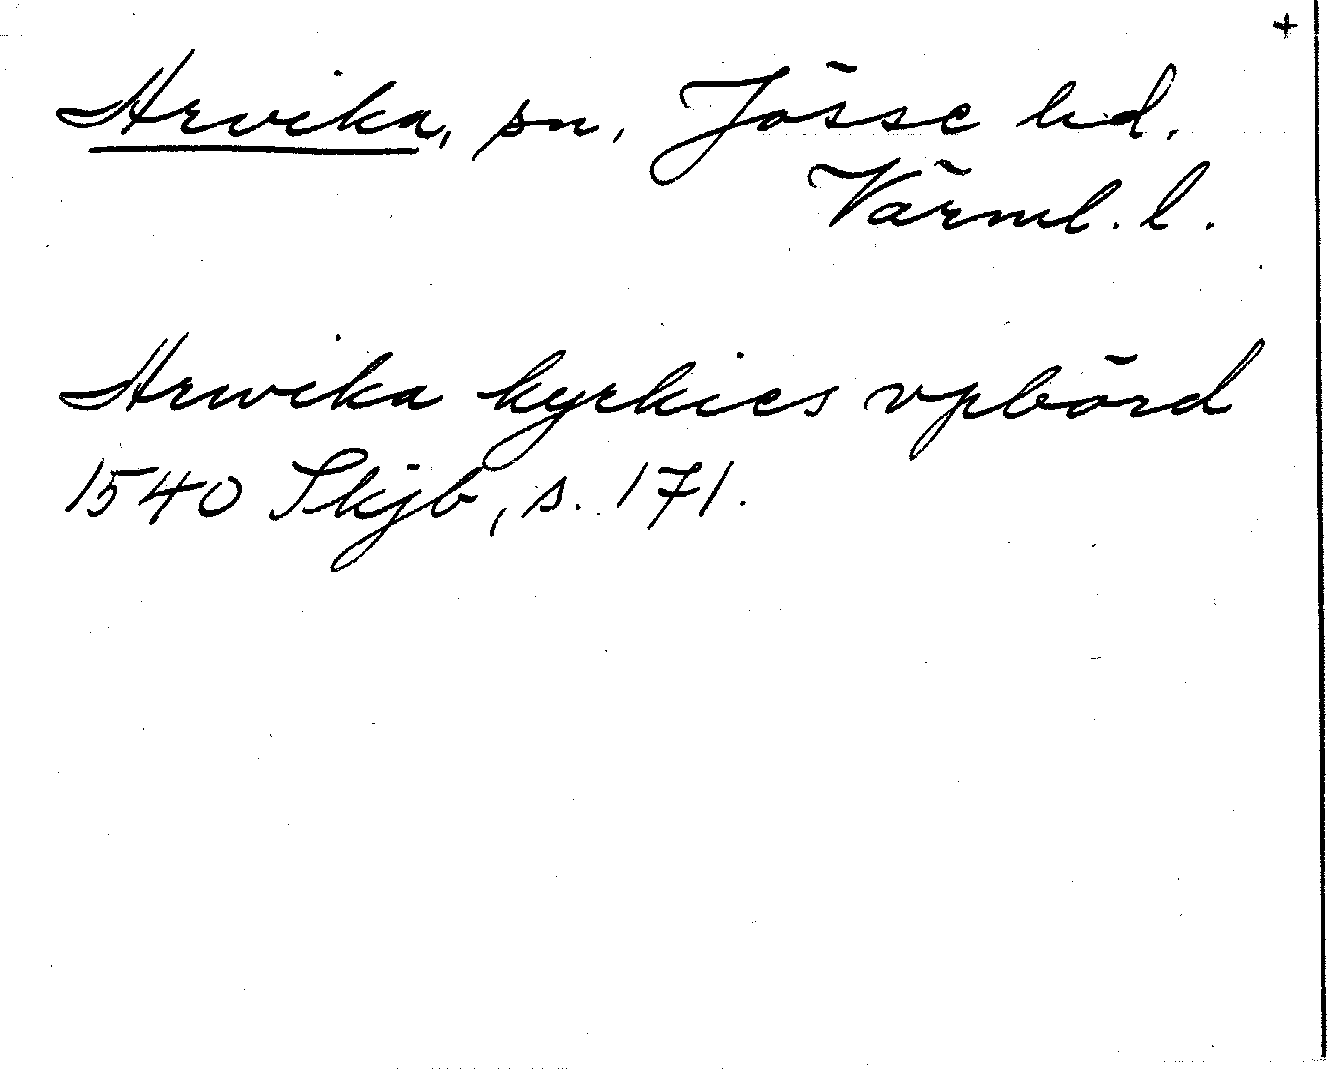 +
Arvika, sn, Jösse hd.
Värml. l.
Arwika kyrkies vpbörd
1540 Skjb, s. 171.